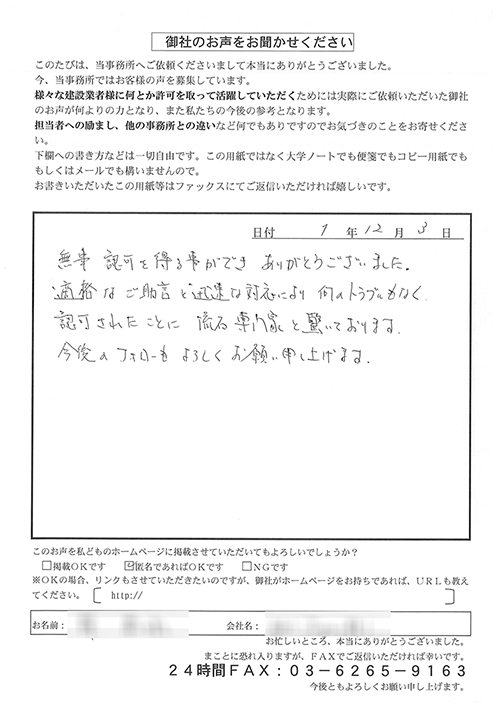 御社のお声をお聞かせください
このたびは、当事務所へご依頼くださいまして本当にありがとうございました。
今、当事務所ではお客様の声を募集しています。
様々な建設業者様に何とか許可を取って活躍していただくためには実際にご依頼いただいた御社
のお声が何よりの力となり、また私たちの今後の参考となります。
担当者への励まし、他の事務所との違いなど何でもありですのでお気づきのことをお寄せくださ
い。
下欄への書き方などは一切自由です。この用紙ではなく大学ノートでも便箋でもコピー用紙でも
もしくはメールでも構いませんので。
お書きいただいたこの用紙等はファックスにてご返信いただければ嬉しいです。
日付 1 年 12 月 3 日
無事 認可を得る事ができ ありがとうございました。
適格なご助言と迅速な対応により 何のトラブルもなく
認可されたことに 流石専門家と驚いております。
今後のフォローも よろしくお願い申し上げます。
このお声を私どものホームページに掲載させていただいてもよろしいでしょうか？
□掲載ＯＫです ☑匿名であればＯＫです □ＮＧです
※ＯＫの場合、リンクもさせていただきたいのですが、御社がホームページをお持ちであれば、ＵＲＬも教え
てください。〔 http:// 〕
お名前： 会社名：
お忙しいところ、本当にありがとうございました。
まことに恐れ入りますが、ＦＡＸでご返信いただければ幸いです。
２４時間ＦＡＸ：０３－６２６５－９１６３
今後ともよろしくお願い申し上げます。